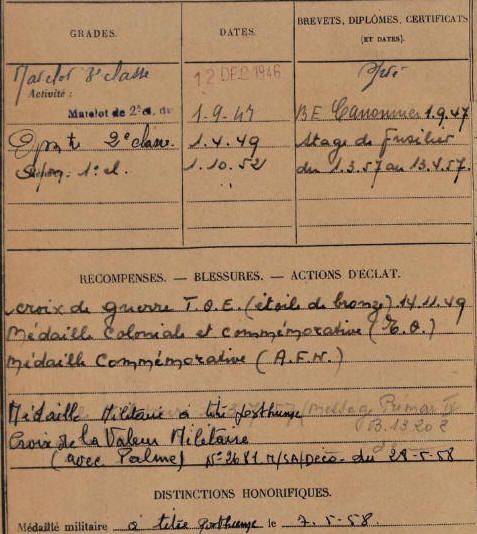 GRADES.
DATES.
BREVETS, DIPLÔMES, CERTIFICATS
(ET DATES).
Matelot 3e classe
12 DEC 1946
Activité :
Matelot de 2e cl. de
1-9-47
BE Canonnier 1.9.47
2e classe.
1.4.49
Stage de Fusilier
1e cl.
1.10.52
du 1.3.57 au 13.4.57.
RÉCOMPENSES. — BLESSURES. — ACTIONS D'ÉCLAT.
Croix de guerre T.O.E. (étoile de bronze) 14.11.49
Médaille Coloniale et commémorative (E.O.)
Médaille Commémorative (A.F.N.)
Médaille Militaire à titre posthume
Croix de la Valeur Militaire
(avec Palme) N° 2681 M/SA/Déco. du 28-5-58
DISTINCTIONS HONORIFIQUES.
Médaillé militaire à titre posthume le 7-5-58.